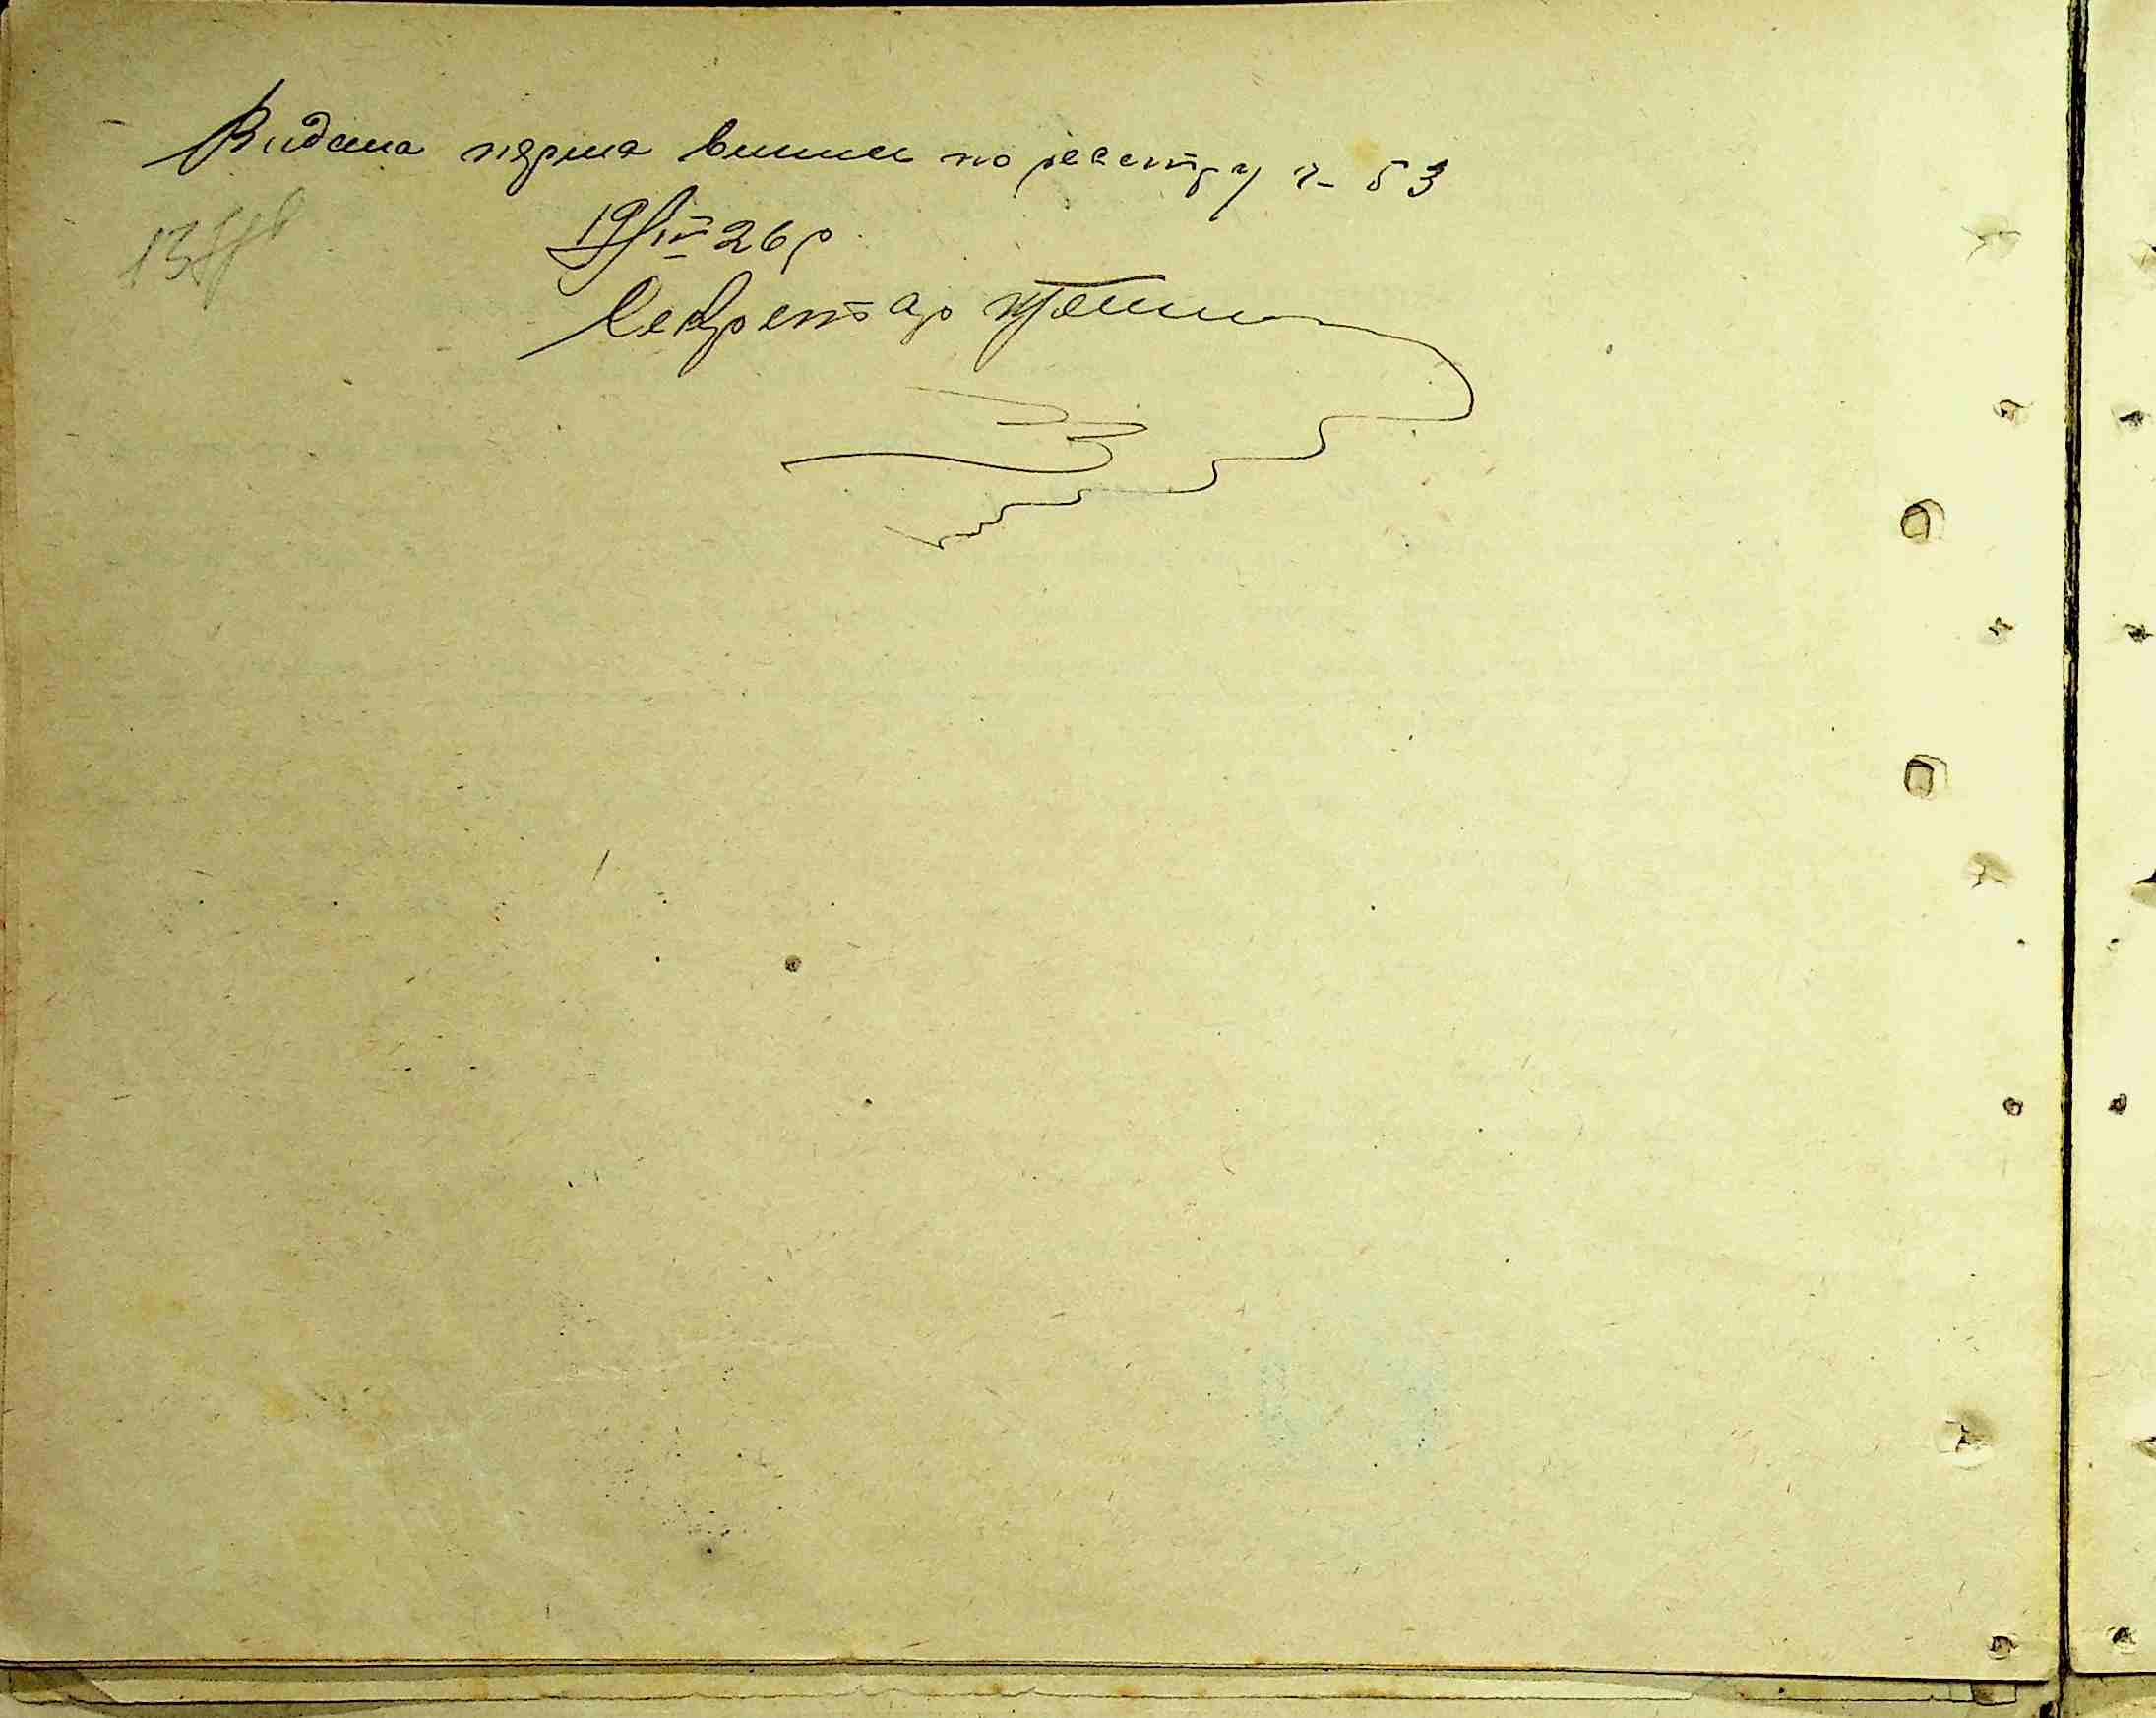 Видана перша випись по реєстру ч- 53
19/IV 26 р
Секретар